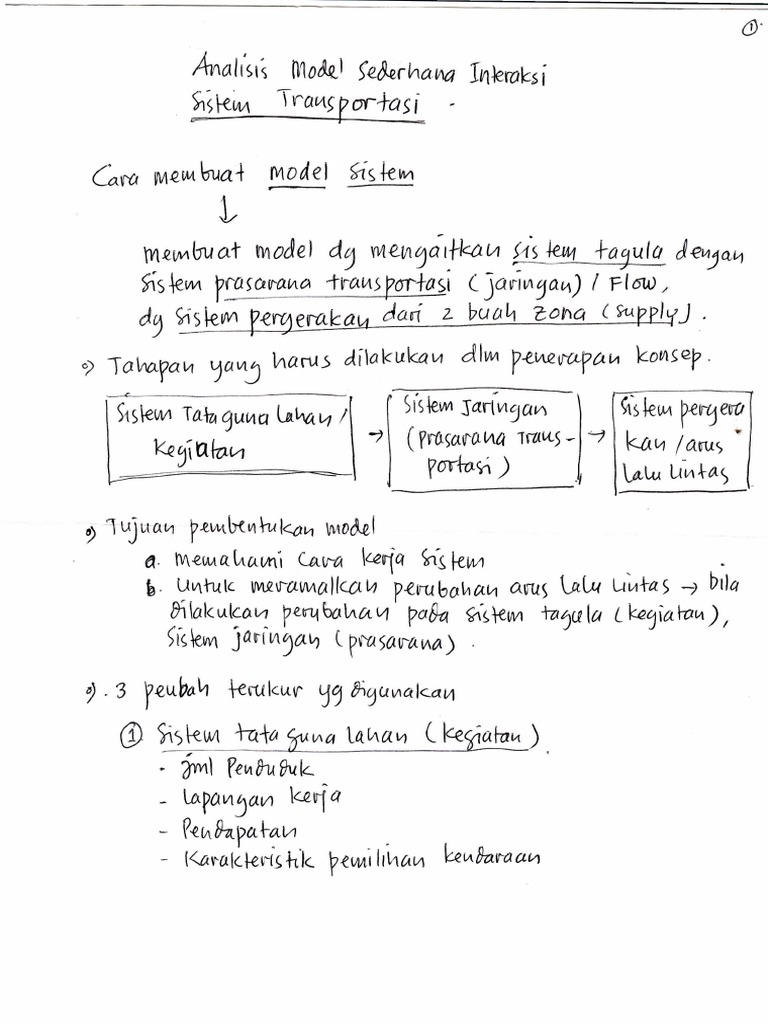 ①.
Analisis Model Sederhana Interaksi
Sistem Transportasi .
Cara membuat model sistem
↓
membuat model dg mengaitkan sistem tagula dengan
sistem prasarana transportasi (jaringan) / Flow,
dg sistem pergerakan dari 2 buah zona (supply).
o) Tahapan yang harus dilakukan dlm penerapan konsep.
Sistem Tata guna Lahan /
Kegiatan
→
Sistem Jaringan
(prasarana Trans-
portasi)
→
Sistem pergera
kan / arus
lalu lintas
o) Tujuan pembentukan model
a. memahami cara kerja sistem
b. Untuk meramalkan perubahan arus lalu lintas → bila
dilakukan perubahan pada sistem tagula (kegiatan),
sistem jaringan (prasarana).
o). 3 peubah terukur yg digunakan
① Sistem tata guna lahan (kegiatan).
- jml Penduduk
- Lapangan kerja
- Pendapatan
- Karakteristik pemilihan kendaraan